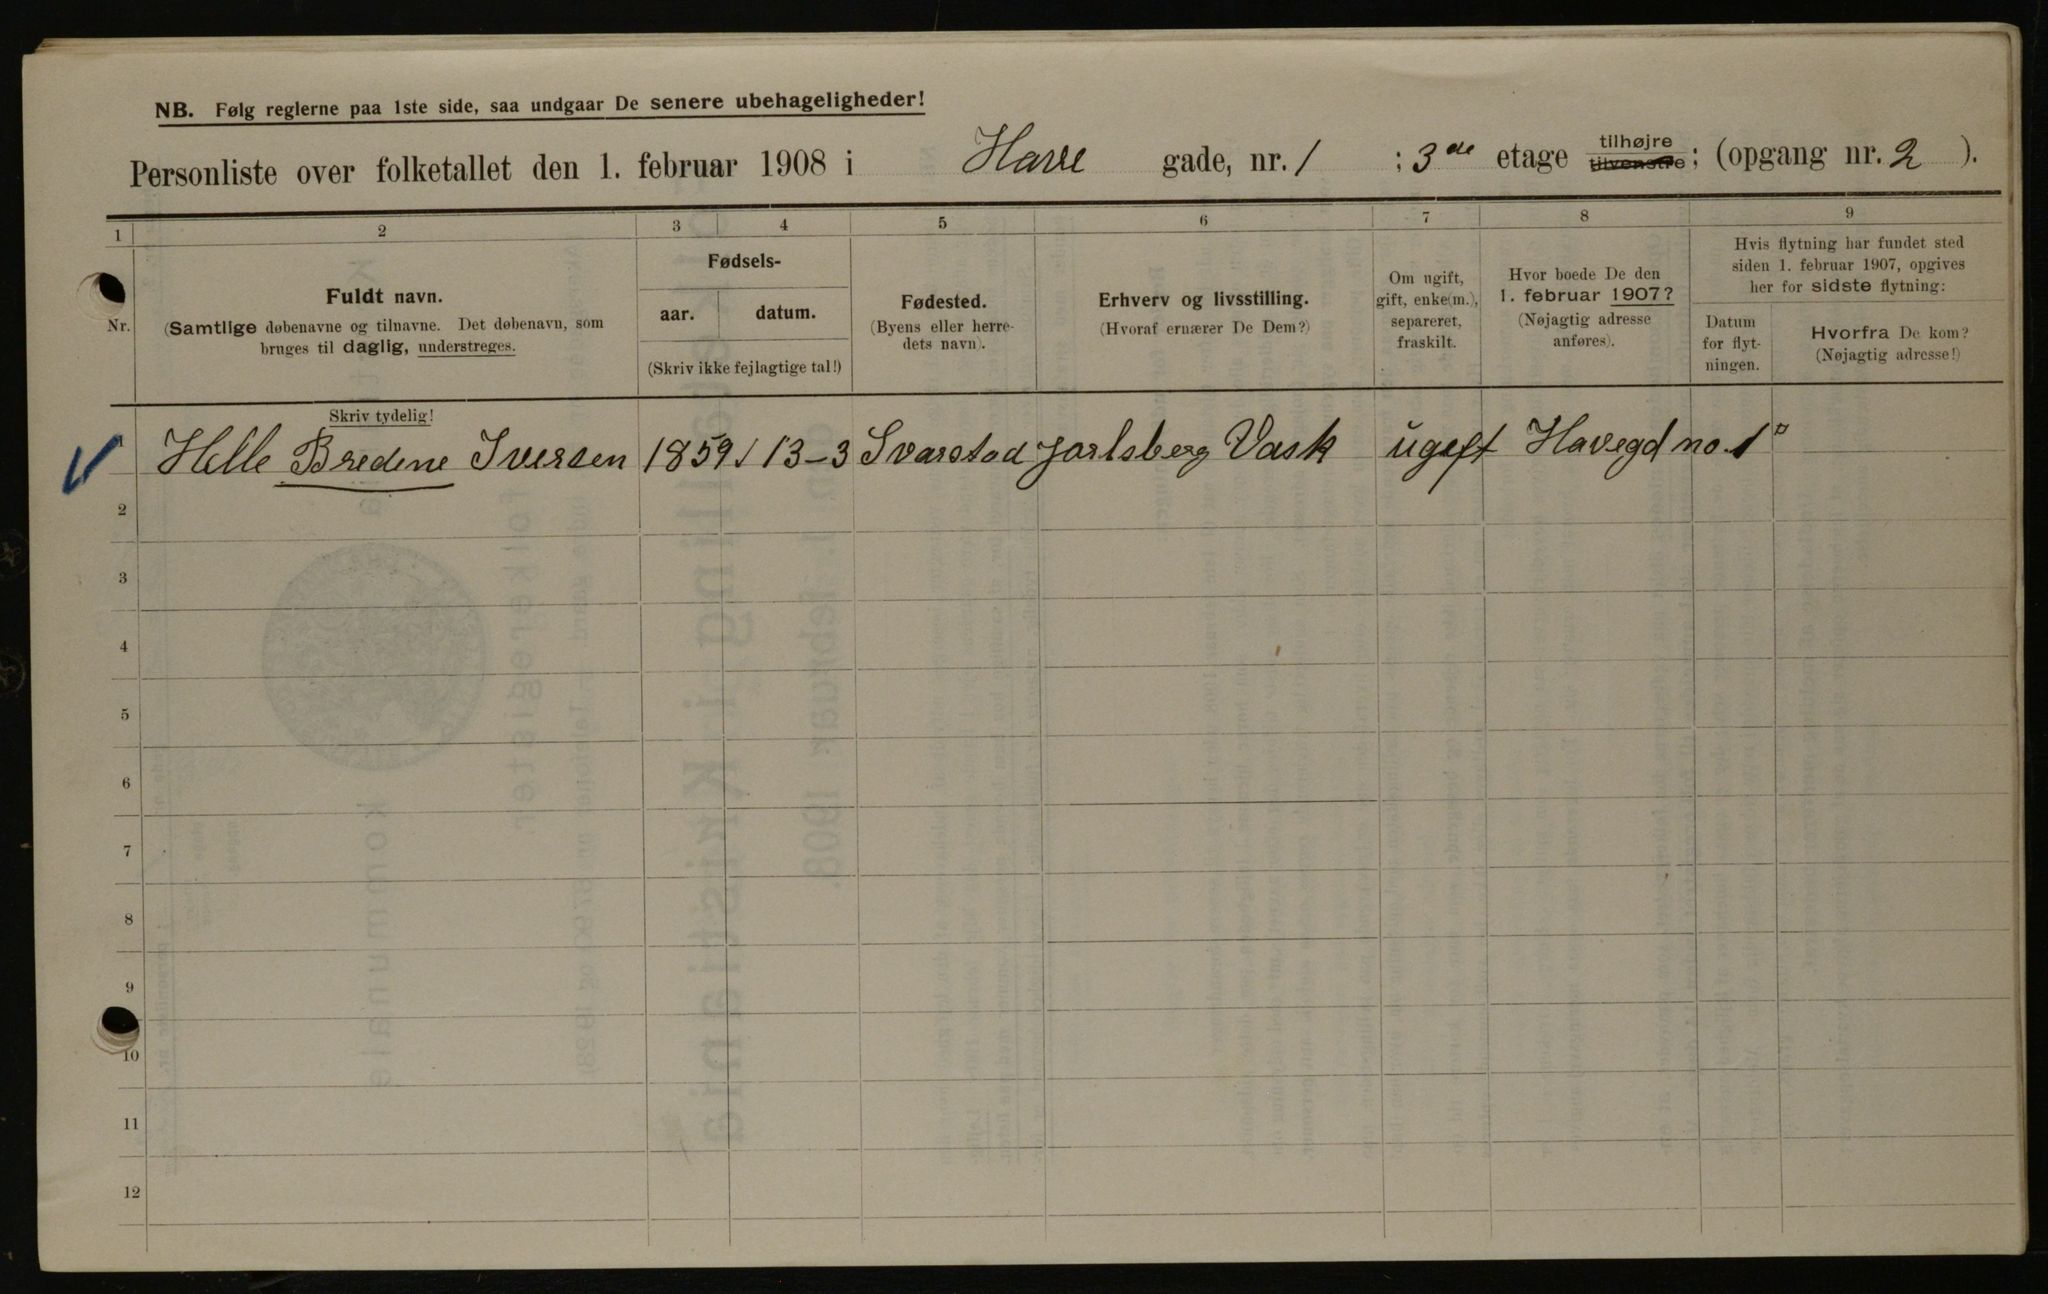 NB. Følg reglerne paa 1ste side, saa undgaar De senere ubehageligheder!
Personliste over folketallet den 1. februar 1908 i Have gade, nr. 1 ; 3de etage tilhøjre tilvenstre; (opgang nr. 2 ).
1 2 3 4 5 6 7 8 9
Nr.
Fuldt navn.
(Samtlige døbenavne og tilnavne. Det døbenavn, som
bruges til daglig, understreges.
Skriv tydelig!
Fødsels-
aar. datum.
(Skriv ikke fejlagtige tal!)
Fødested.
(Byens eller herre-
dets navn).
Erhverv og livsstilling.
(Hvoraf ernærer De Dem?)
Om ugift,
gift, enke(m.),
separeret,
fraskilt.
Hvor boede De den
1. februar 1907?
(Nøjagtig adresse
anføres).
Hvis flytning har fundet sted
siden 1. februar 1907, opgives
her for sidste flytning:
Datum
for flyt-
ningen.
Hvorfra De kom?
(Nøjagtig adresse!)
1 Helle Bredene Iversen 1859 13-3 Svarstad Jarlsberg Vask ugift Havegd no. 1
2
3
4
5
6
7
8
9
10
11
12